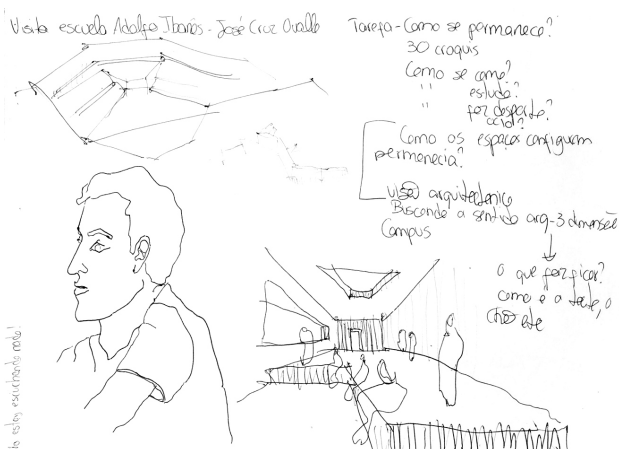 Visita escuela Adolfo Ibanõs - José Cruz Ovalle
Tarefa - Como se permanece?
30 croquis
Como se come?
" estuda?
" faz desporte?
ócio?
Como os espaços configuram
permenecia?
visão arquitectonica
Buscando o sentido arq - 3 dimensões
Campus
O que faz ficar?
como e a teto, o
chão etc
estoy escuchando nada!